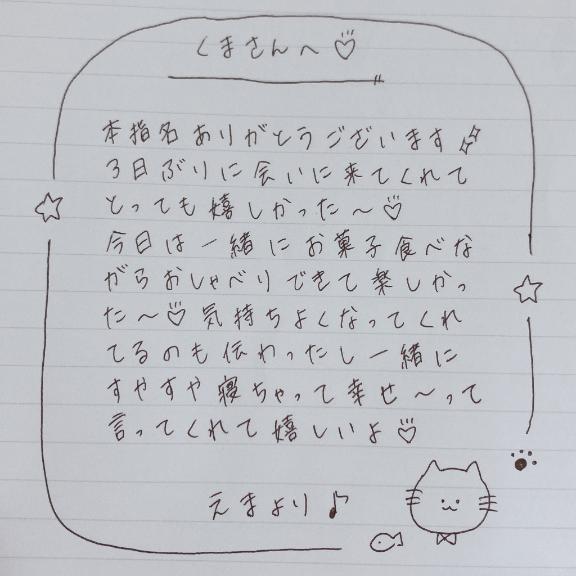 くまさんへ♡
本指名ありがとうございます
3日ぶりに会いに来てくれて
とっても嬉しかった〜♡
今日は一緒にお菓子食べな
がらおしゃべりできて楽しかっ
た〜♡気持ちよくなってくれ
てるのも伝わったし一緒に
すやすや寝ちゃって幸せ〜って
言ってくれて嬉しいよ♡
えまより♪